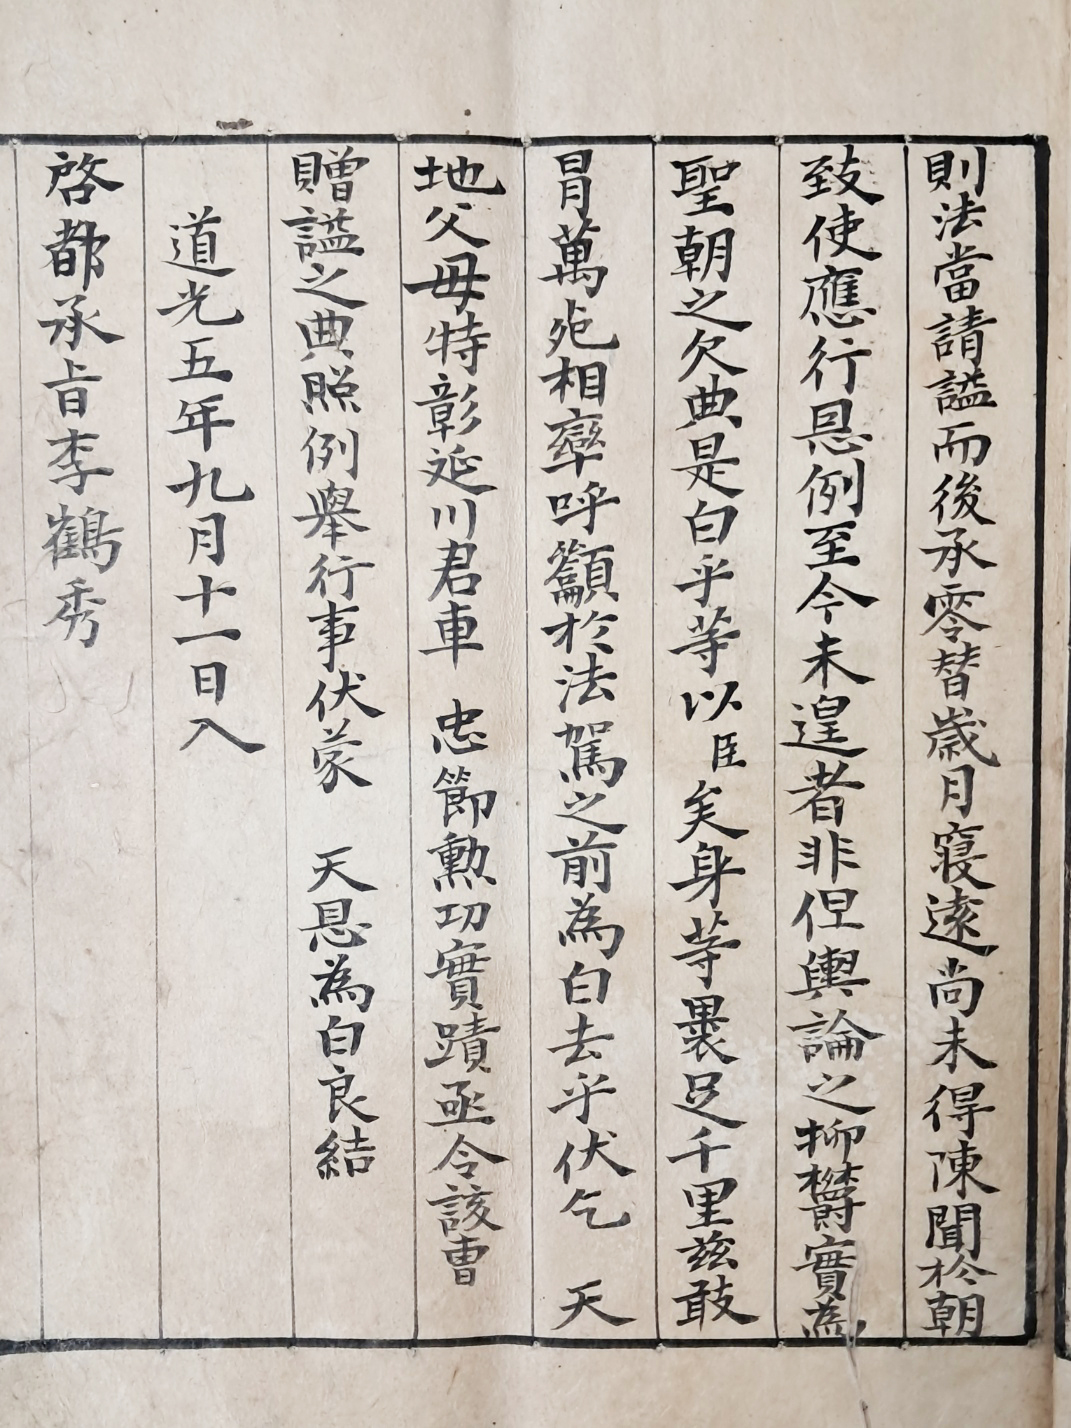 則法當請謚而後承零替歲月寢遠尚未得陳聞於朝
致使應行恩例至今未遑者非但輿論之抑欝實為
聖朝之欠典是白乎等以臣矣身等裹足千里玆敢
冒萬死相率呼籲於法駕之前為白去乎伏乞 天
地父母特彰延川君車 忠節勲功實蹟亟令該曺
贈謚之典照例舉行事伏蒙 天恩為白良結
道光五年九月十一日入
啓都承旨李鶴秀